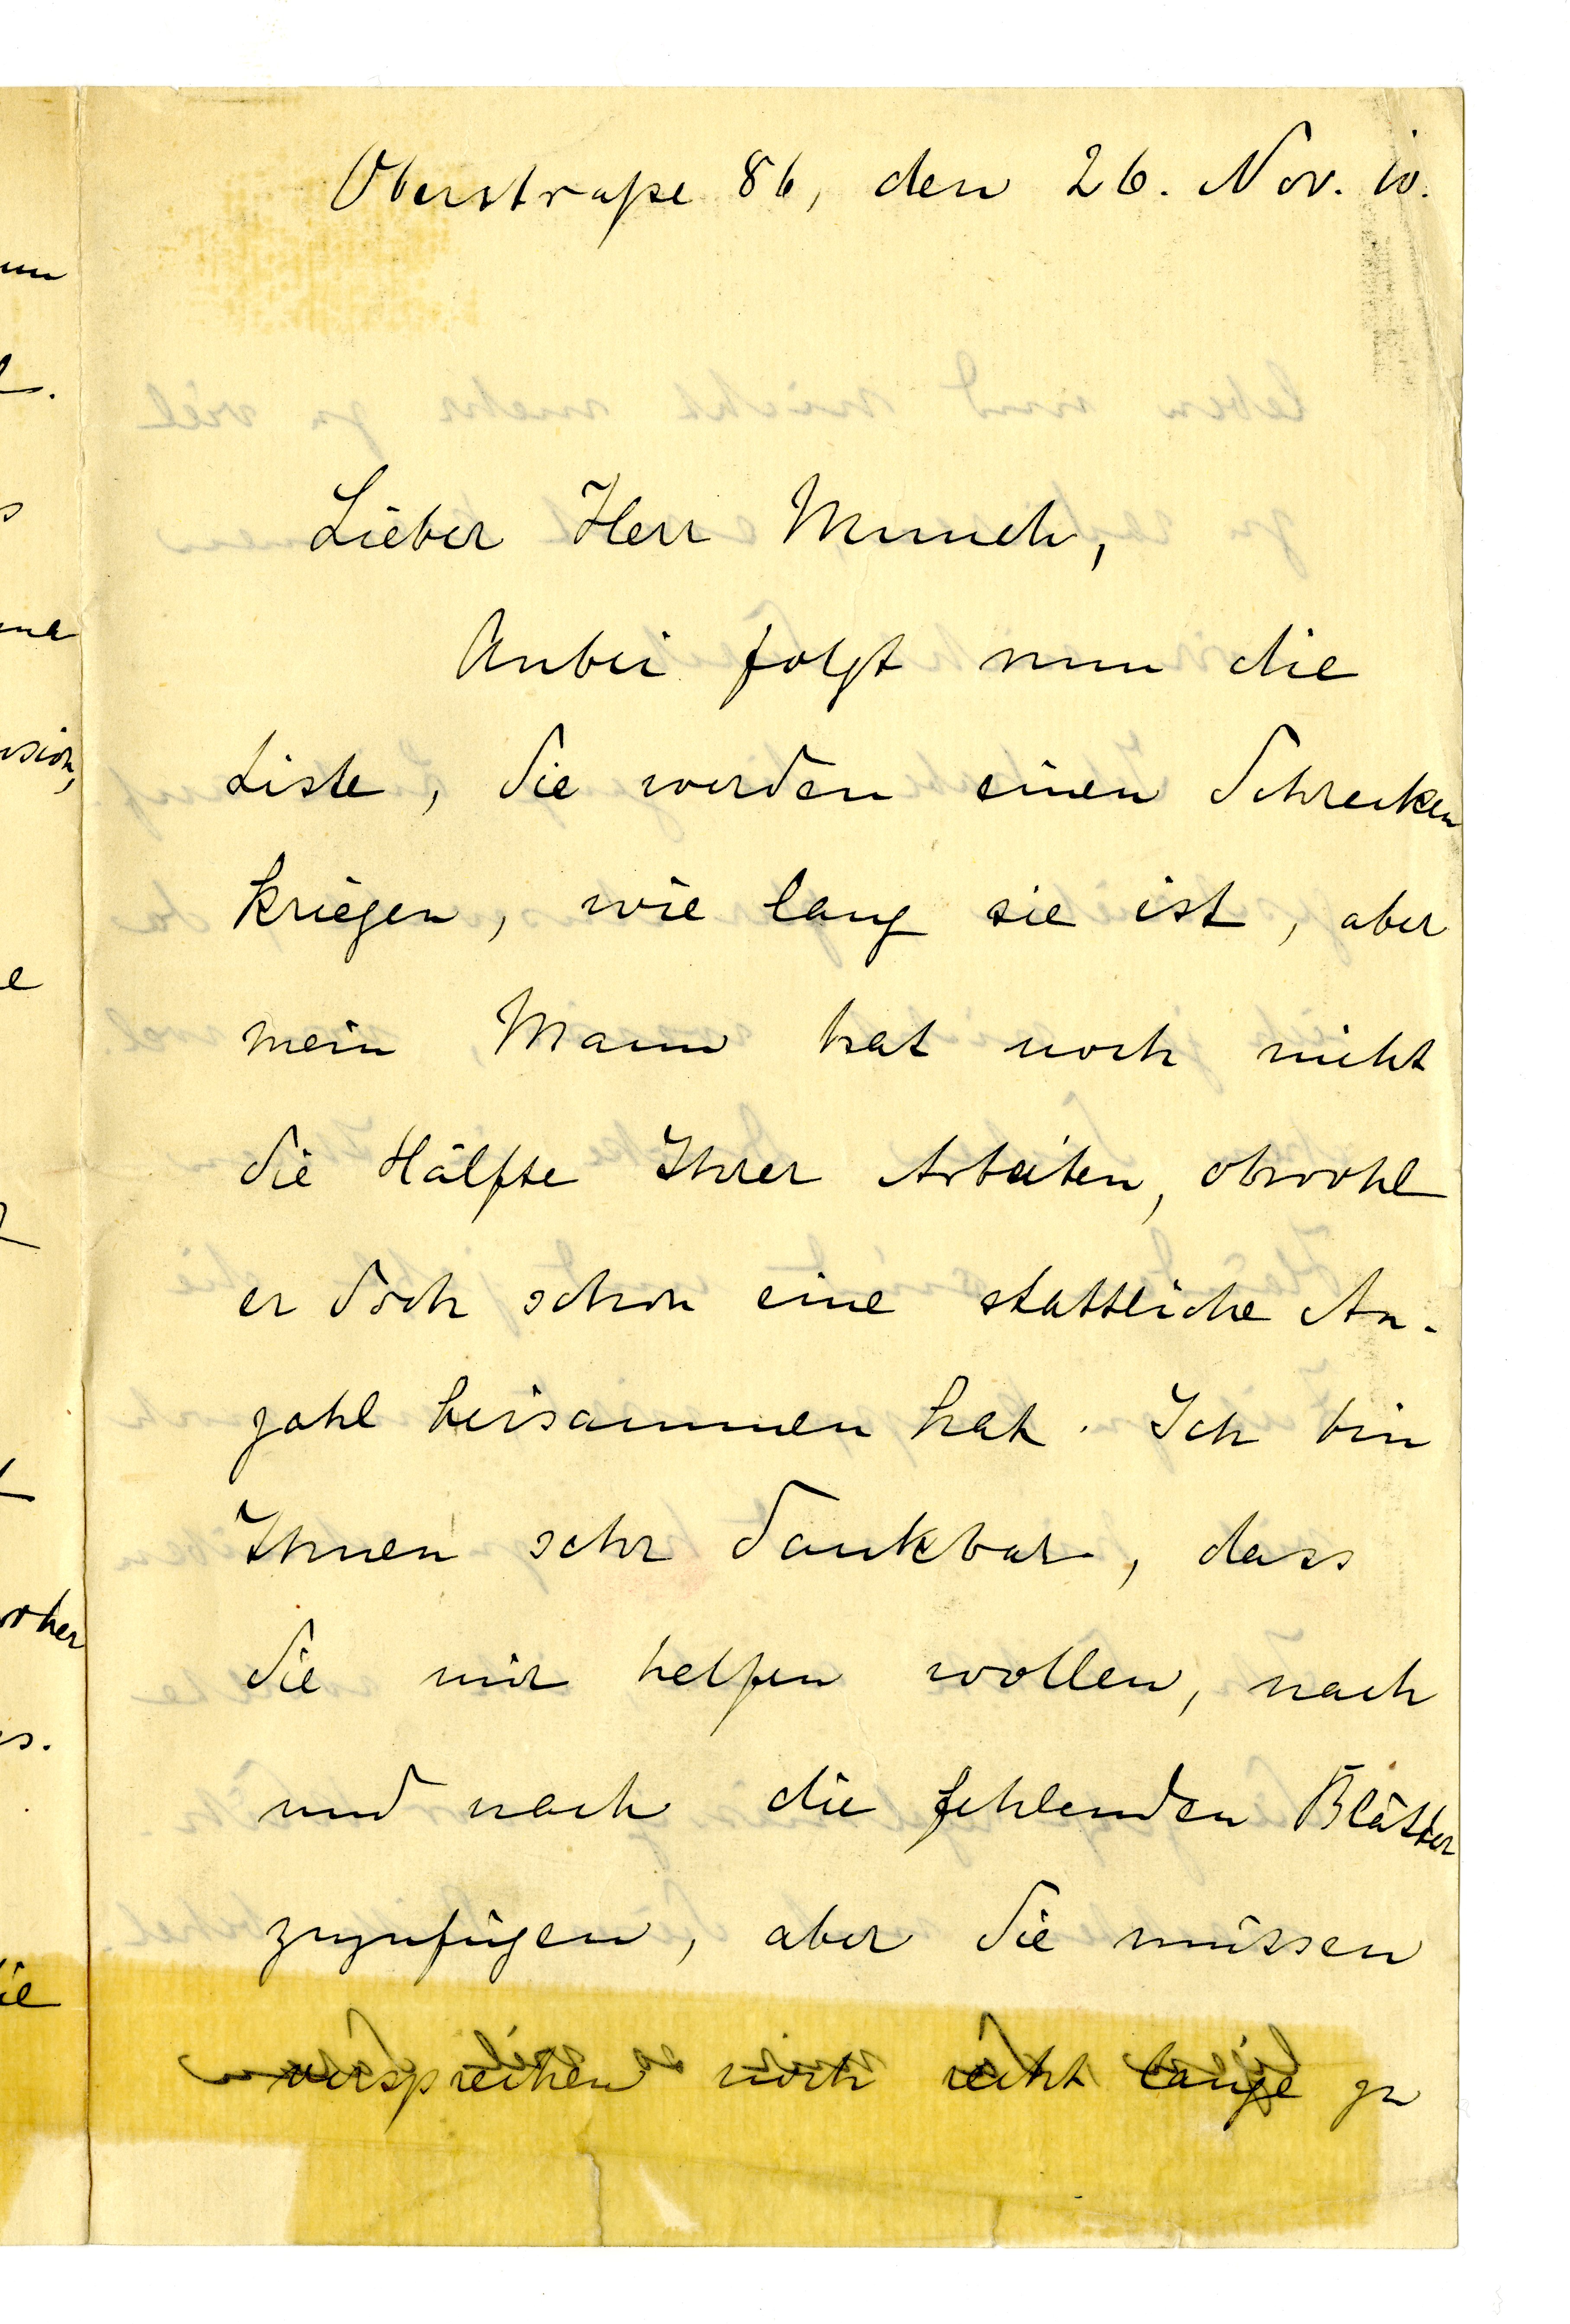 Oberstraße 86, den 26. Nov. 10.
Lieber Herr Munch,
Anbei folgt nun die
Liste, Sie werden einen Schrecken
kriegen, wie lang sie ist, aber
mein Mann hat noch nicht
die Hälfte Ihrer Arbeiten, obwohl
er doch schon eine stattliche An-
zahl beisammen hat. Ich bin
Ihnen sehr dankbar, dass
Sie mir helfen wollen, nach
und nach die fehlenden Blätter
zuzufügen, aber Sie müssen
versprechen noch recht lange zu